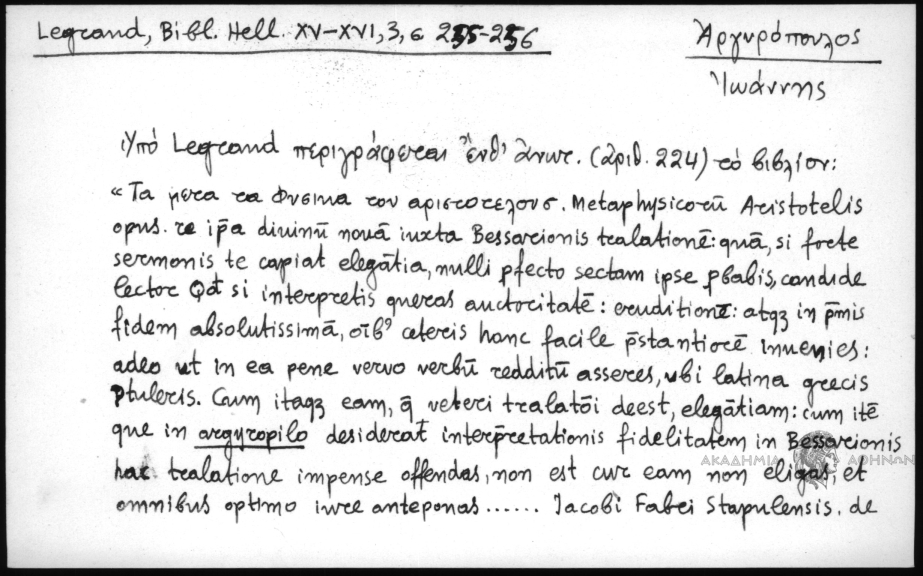 Legrand, Bibl. Hell. XV-XVI, 3, σ 255-256
Ἀργυρόπουλος
Ἰωάννης
Ὑπό Legrand περιγράφεται ἔνθ' ἀνωτ. (ἀριθ. 224) τό βιβλίον:
« Τα μετα τα Φυσικα του αριστοτελους. Metaphysicorū Aristotelis
opus. re ip̄a diuinū nouā iuxta Bessarionis tralationē: quā, si forte
sermonis te capiat elegātia, nulli pfecto sectam ipse pbabis, candide
lector Qđ si interpretis queras auctoritatē: eruditionē: atqz in p̄mis
fidem absolutissimā, oīb⁹ ceteris hanc facile p̄stantiorē inuenies:
adeo ut in ea pene vervo verbū redditū asseres, ubi latina grecis
ptuleris. Cum itaqz eam, q̄ veteri tralatōi deest, elegātiam: cum itē
que in argyropilo desiderat̄ interp̄retationis fidelitatem in Bessarionis
hac tralatione impense offendas, non est cur eam non eligas, et
omnibus optimo iure anteponas...... Jacobi Fabri Stapulensis. de
ΑΚΑΔΗΜΙΑ ΑΘΗΝΩΝ